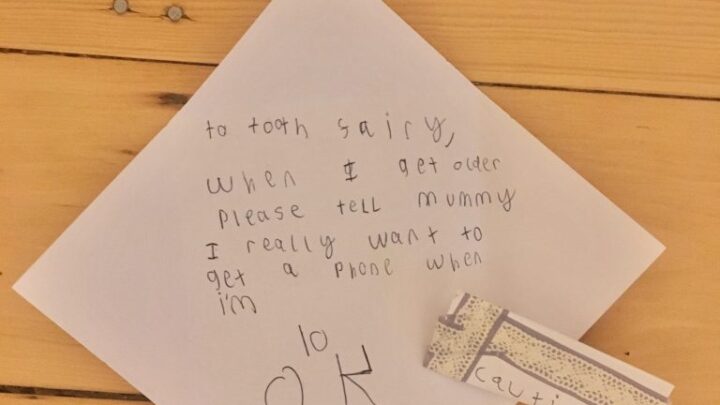 to tooth sairy,
when I get older
please tell mummy
I really want to
get a phone when
i'm
10
OK
cauti